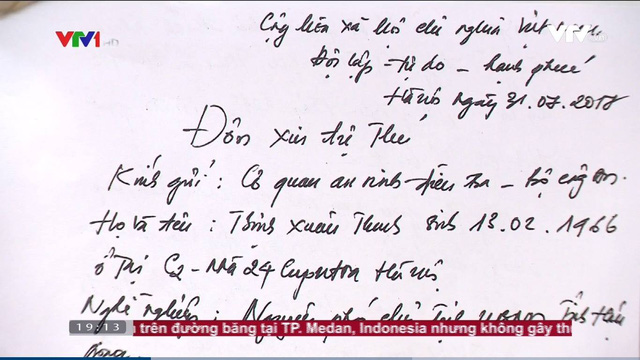 VTV1
Cộng hòa xã hội chủ nghĩa Việt Nam
Độc lập - tự do - hạnh phúc
Hà nội ngày 31.07.2017
Đơn xin tự thú
Kính gửi : Cơ quan an ninh điều tra - Bộ công an.
Họ và tên : Trịnh Xuân Thanh sinh 13.02.1966
ở tại C2 - Nhà 24 Ciputra Hà nội
Nghề nghiệp : Nguyên phó chủ tịch UBND Tỉnh Hậu
Giang
19:13 trên đường băng tại TP. Medan, Indonesia nhưng không gây thi